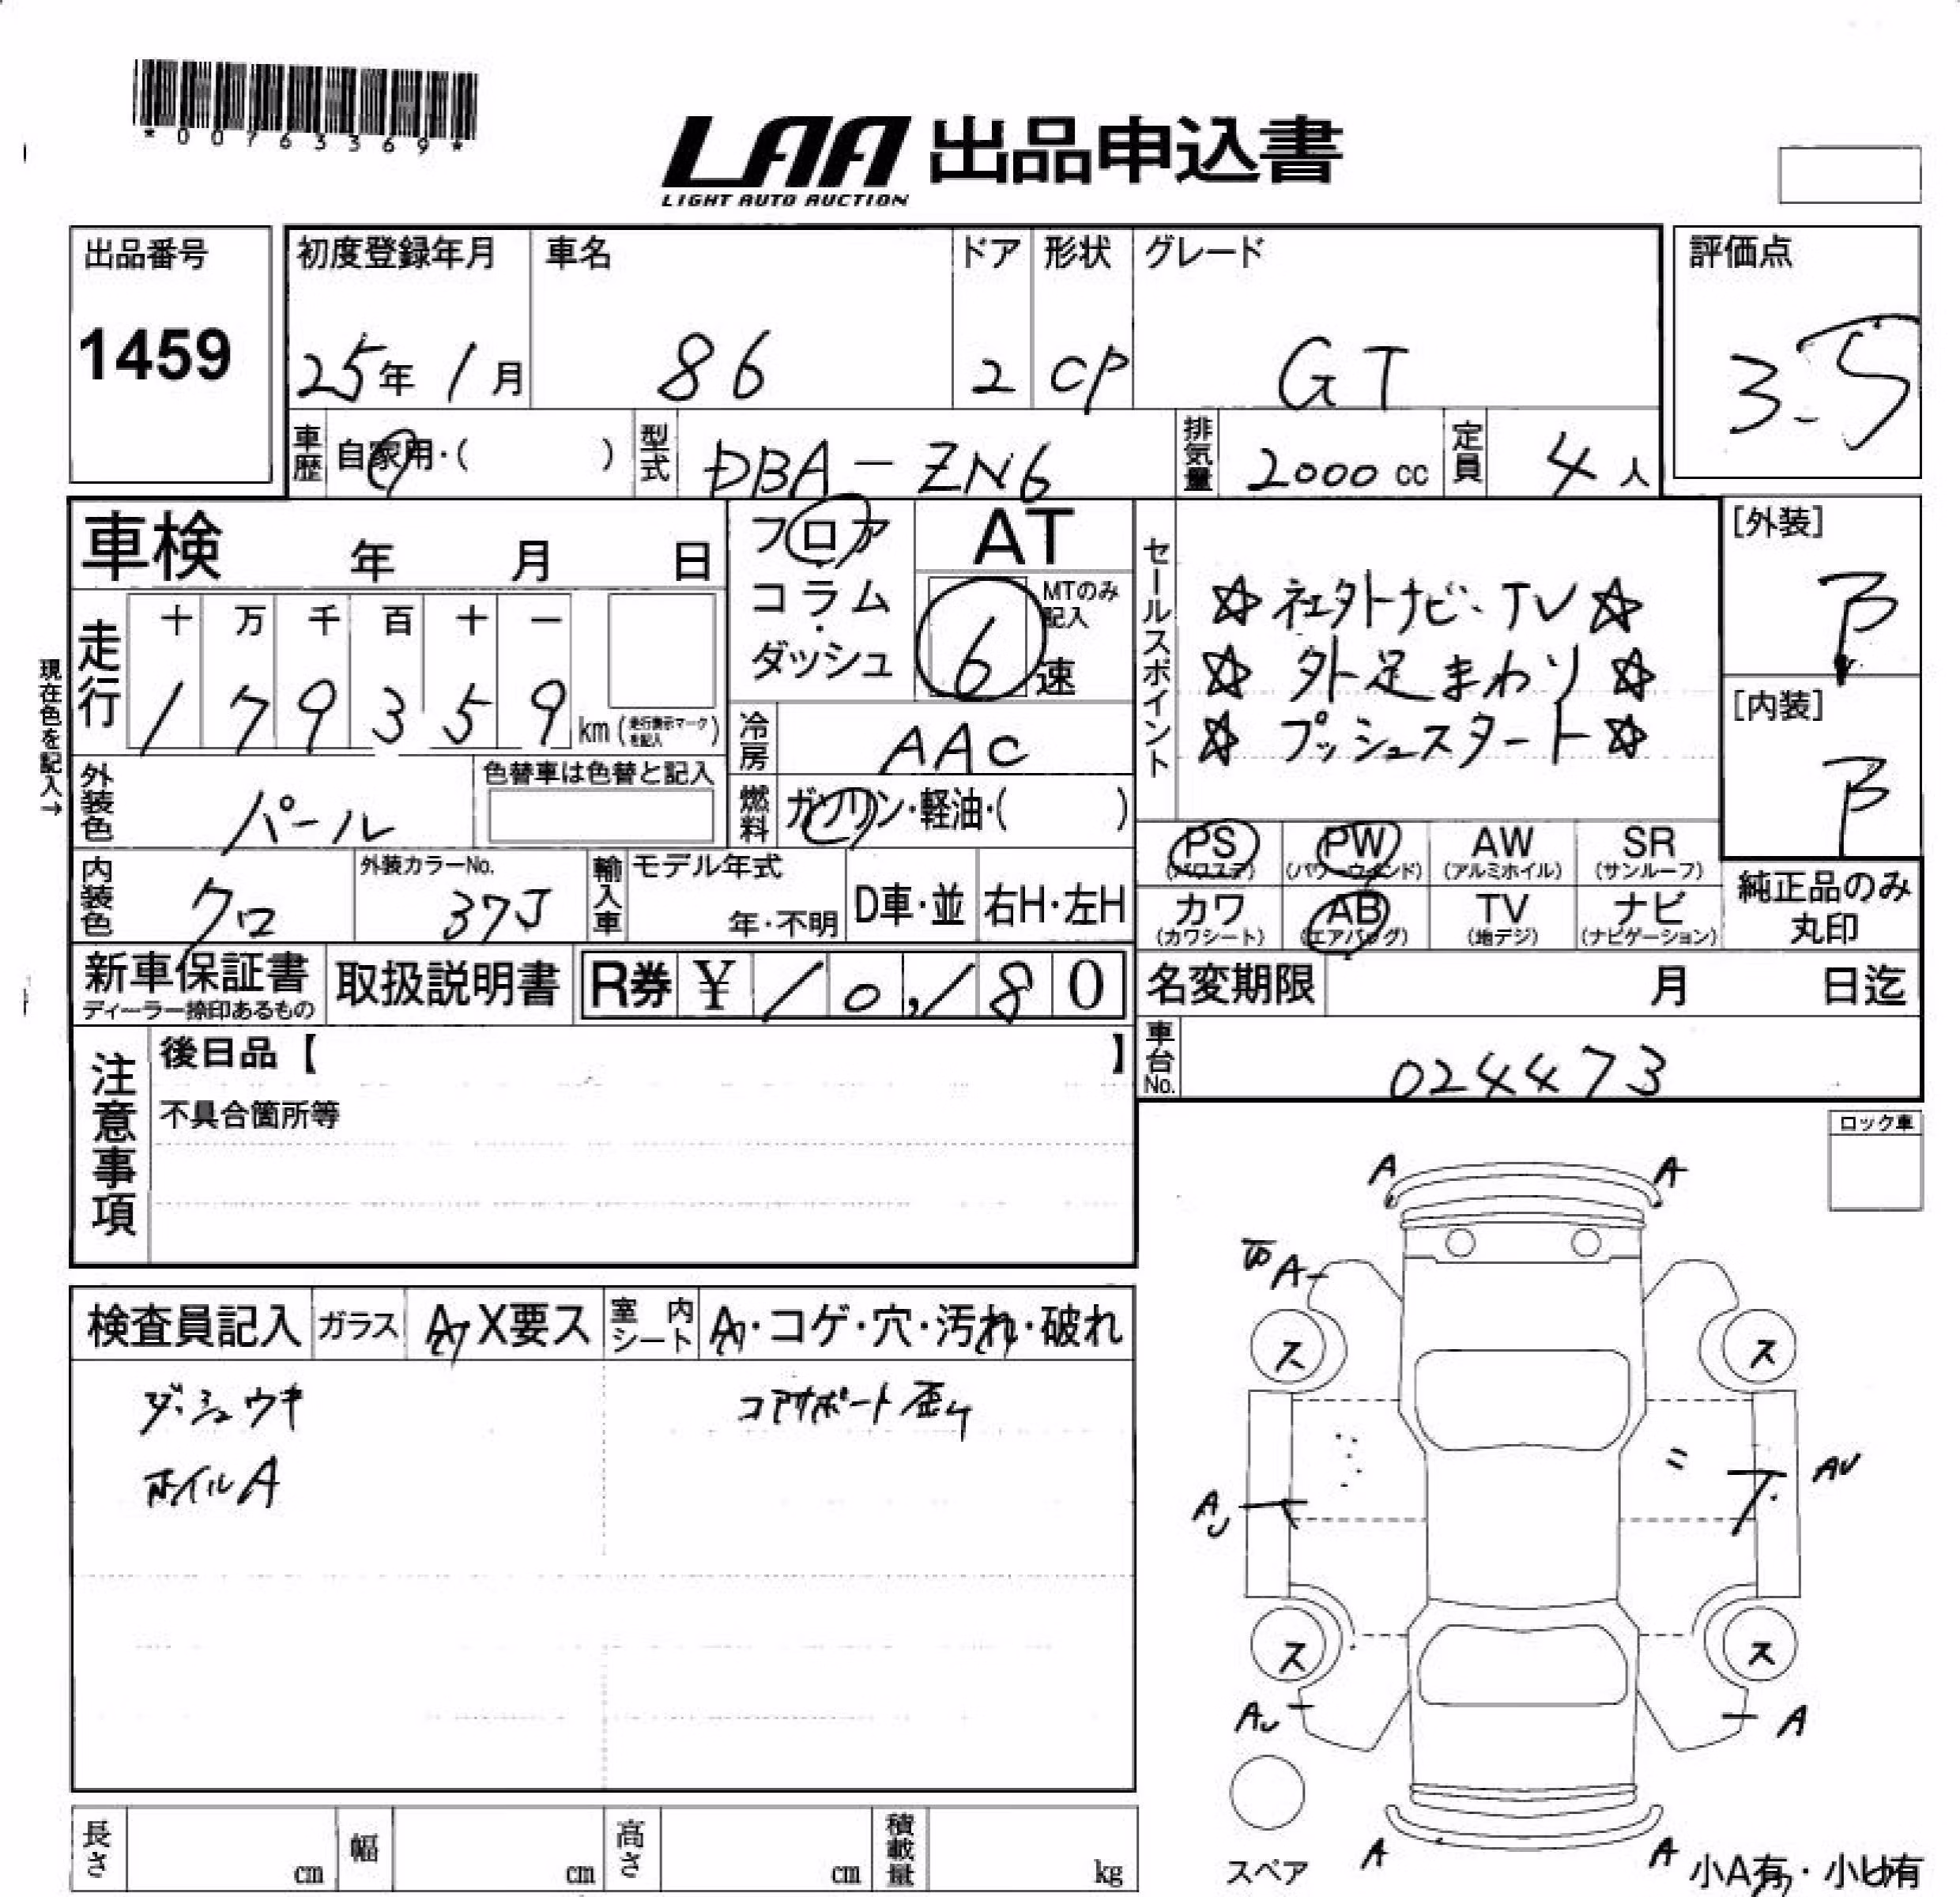 *00763369*
LAA 出品申込書
LIGHT AUTO AUCTION
出品番号
1459
初度登録年月
25年 1月
車名
86
ドア
2
形状
CP
グレード
GT
評価点
3.5
車歴
自家用・( )
型式
DBA-ZN6
排気量
2000 cc
定員
4人
車検 年 月 日
フロア
・
コラム
・
ダッシュ
AT
MTのみ
記入
6速
セールスポイント
☆社外ナビ・TV☆
☆外足まわり☆
☆プッシュスタート☆
[外装]
B
[内装]
B
現在色を記入→
走行
十 万 千 百 十 一
1 7 9 3 5 9 km (走行表示マークを記入)
冷房
AAC
外装色
パール
色替車は色替と記入
燃料
ガソリン・軽油・( )
PS
(パワステ)
PW
(パワーウインド)
AW
(アルミホイル)
SR
(サンルーフ)
カワ
(カワシート)
AB
(エアバッグ)
TV
(地デジ)
ナビ
(ナビゲーション)
純正品のみ
丸印
内装色
クロ
外装カラーNo.
37J
輸入車
モデル年式
年・不明
D車・並
右H・左H
新車保証書
ディーラー捺印あるもの
取扱説明書
R券 ¥ 10,180
名変期限 月 日迄
車台No.
024473
注意事項
後日品【 】
不具合箇所等
ロック車
検査員記入
ガラス
A・X要ス
室内シート
A・コゲ・穴・汚れ・破れ
ダッシュウキ
コアサポート歪ケ
ホイルA
A A
A
ス ス
AU
AU
ス ス
AU
A
スペア
A A
小A有・小U有
長さ cm
幅 cm
高さ cm
積載量 kg